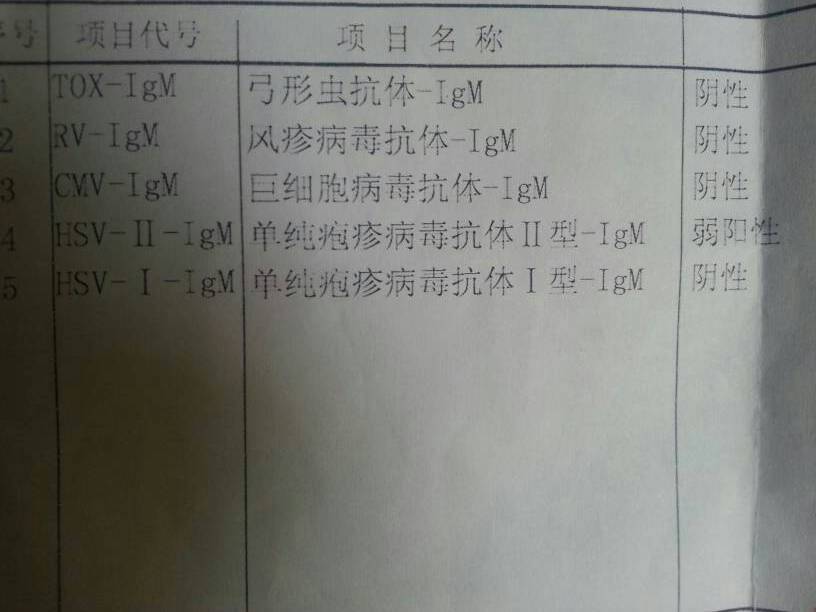 序号 项目代号 项 目 名 称
1 TOX-IgM 弓形虫抗体-IgM 阴性
2 RV-IgM 风疹病毒抗体-IgM 阴性
3 CMV-IgM 巨细胞病毒抗体-IgM 阴性
4 HSV-Ⅱ-IgM 单纯疱疹病毒抗体Ⅱ型-IgM 弱阳性
5 HSV-Ⅰ-IgM 单纯疱疹病毒抗体Ⅰ型-IgM 阴性